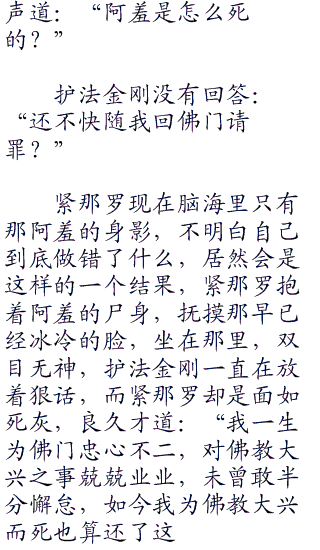 声道：“阿羞是怎么死
的？”
护法金刚没有回答：
“还不快随我回佛门请
罪？”
紧那罗现在脑海里只有
那阿羞的身影，不明白自己
到底做错了什么，居然会是
这样的一个结果，紧那罗抱
着阿羞的尸身，抚摸那早已
经冰冷的脸，坐在那里，双
目无神，护法金刚一直在放
着狠话，而紧那罗却是面如
死灰，良久才道：“我一生
为佛门忠心不二，对佛教大
兴之事兢兢业业，未曾敢半
分懈怠，如今我为佛教大兴
而死也算还了这